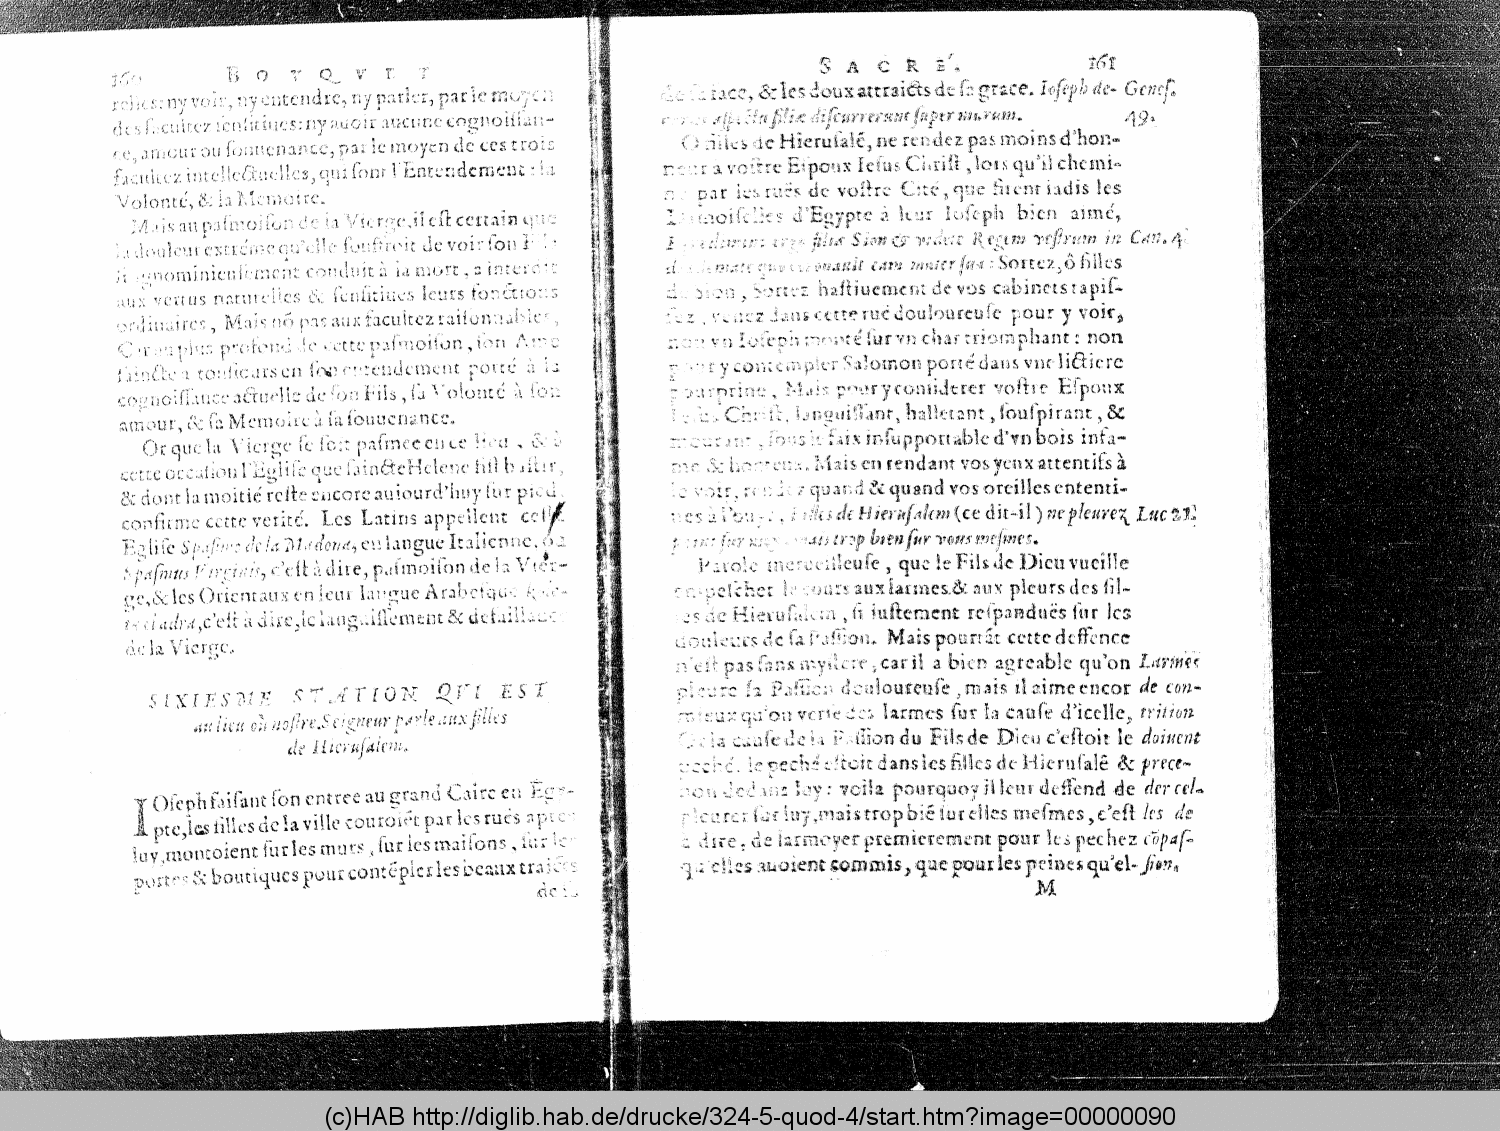 160 BOVQVET
relles: ny voir, ny entendre, ny parler, par le moyen
des facultez sensitiues: ny auoir aucune cognoissan-
ce, amour ou souuenance, par le moyen de ces trois
facultez intellectuelles, qui sont l'Entendement: la
Volonté, & la Memoire.
Mais au pasmoison de la Vierge, il est certain que
la douleur extréme qu'elle souffroit de voir son Fils
si ignominieusement conduit à la mort, a interdit
aux vertus naturelles & sensitiues leurs fonctions
ordinaires, Mais nõ pas aux facultez raisonnables,
Car au plus profond de cette pasmoison, son Ame
saincte a tousiours en son entendement porté à la
cognoissance actuelle de son Fils, sa Volonté à son
amour, & sa Memoire à sa souuenance.
Or que la Vierge se soit pasmee en ce lieu, & à
cette occasion l'Eglise que saincte Helene fist bastir,
& dont la moitié reste encore auiourd'huy sur pied,
confirme cette verité. Les Latins appellent cette
Eglise Spasme de la Madona, en langue Italienne, ou
Spasmus Virginis, c'est à dire, pasmoison de la Vier-
ge, & les Orientaux en leur langue Arabesque
c'est à dire, le languissement & defaillance
de la Vierge.
SIXIESME STATION QVI EST
au lieu où nostre Seigneur parle aux filles
de Hierusalem.
IOseph faisant son entree au grand Caire en Egy-
pte, les filles de la ville couroiẽt par les rues apres
luy, montoient sur les murs, sur les maisons, sur les
portes & boutiques pour contẽpler les beaux traicts
de sa
SACRÉ. 161
de sa face, & les doux attraicts de sa grace. Ioseph de- Genes.
corus aspectu filiæ discurrerunt super murum. 49.
O filles de Hierusalẽ, ne rendez pas moins d'hon-
neur a vostre Espoux Iesus Christ, lors qu'il chemi-
ne par les ruës de vostre Cité, que firent iadis les
Damoiselles d'Egypte à leur Ioseph bien aimé,
filiæ Sion & videte Regem vestrum in Can. 4
diademate quo coronauit eum mater sua: Sortez, ô filles
de Sion, Sortez hastiuement de vos cabinets tapis-
sez, venez dans cette ruë douloureuse pour y voir,
non vn Ioseph monté sur vn char triomphant: non
pour y contempler Salomon porté dans vne lictiere
pourprine, Mais pour y considerer vostre Espoux
Iesus Christ, languissant, halletant, souspirant, &
mourant, sous le faix insupportable d'vn bois infa-
me & honteux. Mais en rendant vos yeux attentifs à
le voir, rendez quand & quand vos oreilles ententi-
ues à l'ouyr, Filles de Hierusalem (ce dit-il) ne pleurez Luc 23.
point sur moy, mais trop bien sur vous mesmes.
Parole merueilleuse, que le Fils de Dieu vueille
empescher le cours aux larmes, & aux pleurs des fil-
les de Hierusalem, si iustement respanduës sur les
douleurs de sa Passion. Mais pourtãt cette deffence
n'est pas sans mystere, car il a bien agreable qu'on Larmes
pleure sa Passion douloureuse, mais il aime encor de con-
mieux qu'on verse des larmes sur la cause d'icelle, trition
Or la cause de la Passion du Fils de Dieu c'estoit le doiuent
peché, le peché estoit dans les filles de Hierusalẽ & prece-
non dedans luy: voila pourquoy il leur deffend de der cel-
pleurer sur luy, mais trop biẽ sur elles mesmes, c'est les de
à dire, de larmoyer premierement pour les pechez cõpas-
qu'elles auoient commis, que pour les peines qu'el- sion.
M
(c)HAB http://diglib.hab.de/drucke/324-5-quod-4/start.htm?image=00000090